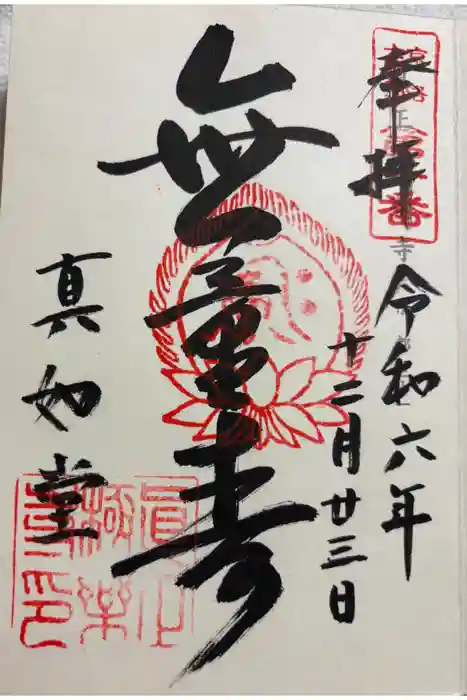 奉拝
令和六年
十二月廿三日
無量寿
真如堂